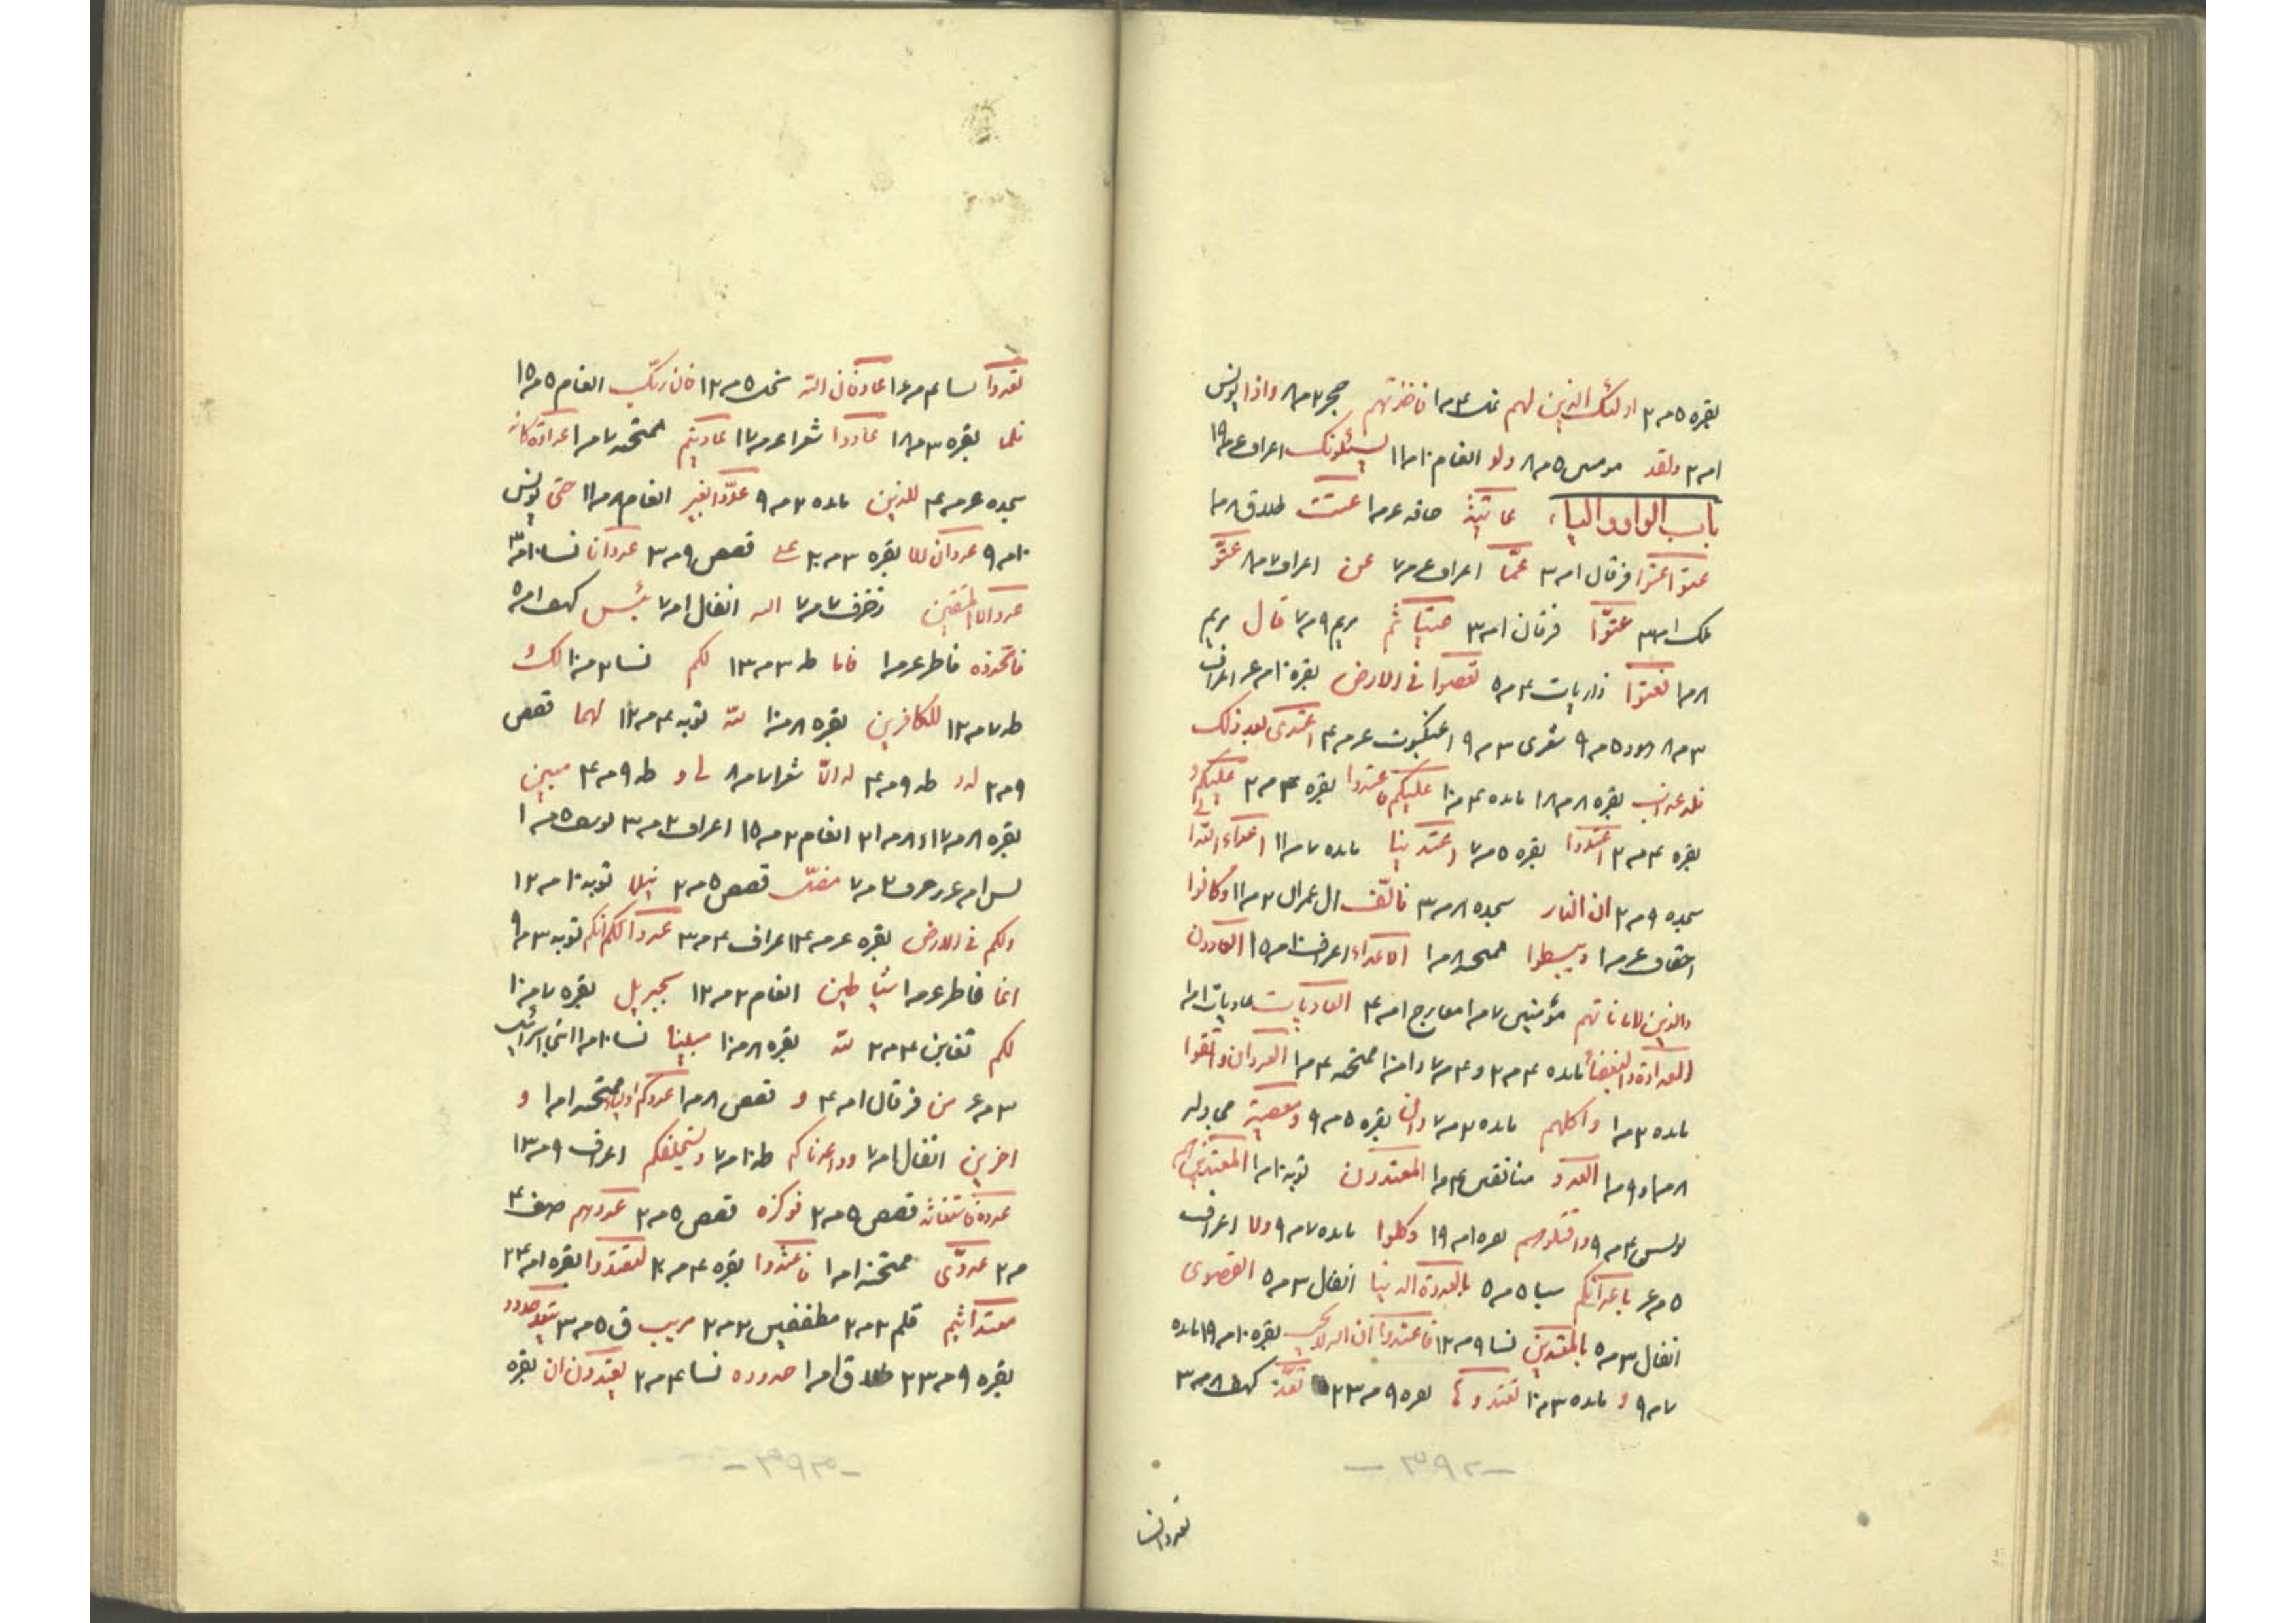 بقره ٥ مر ٢ اولئك الذين لهم نمل ٤ مر ١ فاخذتهم حجر ٢ مر ٨ واذا يونس
١ مر ٢ ولقد مومن ٥ مر ٨ ولو انعام ١٠ مر ١١ يسئلونك اعراف ع مر ١٩
باب الواو والياء عاتية حاقه ع مر ١ عتت طلاق ٨ مر ١
عتوا عتوا فرقان ١ مر ٣ عما اعراف ع مر ٧ عن اعراف ٧ مر ٨ عتو
ملك ١ مر ٣ عتوّا فرقان ١ مر ٣ عتيا ثم مريم ٩ مر ٧ قال مريم
٨ مر ١ فعتوا ذاريات ٤ مر ٥ تعصوا في الارض بقره ١٠ مر ع اعراف
٣ مر ٨ هود ٥ مر ٩ شعرى ٣ مر ٩ عنكبوت ع مر ٤ اعتدى بعد ذلك
فله عذاب بقره ٨ مر ١٨ مائده ٤ مر ١٠ عليكم فاعتدوا بقره ٤ مر ٢ عليكم و
بقره ٤ مر ٢ اعتدوا بقره ٥ مر ٧ اعتدينا مائده ٧ مر ١١ اعداء الله
سجده ٩ مر ٢ ان النار سجده ٨ مر ٣ فالّف ال عمران ٢ مر ١١ وكانوا
احقاف ع مر ١ ويبسطوا ممتحنه ٨ مر ١ الاعداء اعراف ١٠ مر ١٥ العادون
والذين لاماناتهم مؤمنين ٧ مر ١ معارج ١ مر ٤ العاديات عاديات ١ مر ١
العداوة والبغضاء مائده ٤ مر ٢ و ٤ مر ٧ و ١ مر ١٠ ممتحنه ٤ مر ١ العدوان واتقوا
مائده ٢ مر ١ واكلهم مائده ٢ مر ٧ وان بقره ٥ مر ٩ ومعصية مجادله
٨ مر ١ و ٩ مر ١ العدو منافقين ٤ مر ١ المعتدون توبه ١٠ مر ١ المعتدين
يونس ٤ مر ٩ واقتلوهم بقره ١ مر ١٩ وكلوا مائده ٧ مر ٩ ولا اعراف
٥ مر ع باعدائكم نسا ٥ مر ٥ بالعدوة الدنيا انفال ٣ مر ٥ القصوى
انفال ٣ مر ٥ بالمعتدين نسا ٩ مر ١٢ فاعتدوا ان الله لا يحب بقره ١٠ مر ١٩ مائده
٧ مر ٩ و مائده ٣ مر ١٠ تعتدوها بقره ٩ مر ٢٣ تعد كهف ٨ مر ٣
٣٩٢
تعدوا نسا
تعدوا نسا ٤ مر ١٤ عاد فان الله نحل ٥ مر ١٢ فان ربك انعام ٥ مر ١٥
فلما بقره ٣ مر ١٨ عادوا شعرا ع مر ١٧ عاديتم ممتحنه ٧ مر ١ عداوة كانه
سجده ع مر ٤ للذين مائده ٢ مر ٩ عدوّا بغير انعام ٨ مر ١١ حتى يونس
١٠ مر ٩ عدوان للا بقره ٣ مر ٢٠ على قصص ٩ مر ٣ عدوانا نسا ١٠ مر ٣
عدوّ الا المتقين زخرف ٧ مر ٧ الله انفال ١ مر ٧ بئس كهف ١ مر ٥
فاتخذوه فاطر ع مر ١ فاما طه ٣ مر ١٣ لكم نسا ٢ مر ١٠ لك
طه ٧ مر ١٢ للكافرين بقره ٨ مر ١٠ لله توبه ٤ مر ١٢ لهما قصص
٩ مر ٢ له و طه ٩ مر ٤ له الا شعرا ٧ مر ٨ لى و طه ٩ مر ٤ مبين
بقره ٨ مر ١٧ و ٨ مر ٢١ انعام ٢ مر ١٥ اعراف ٢ مر ٣ يوسف ٥ مر ١
يس ١ مر ع زخرف ٢ مر ٧ مضل قصص ٥ مر ٢ نيلا توبه ١٠ مر ١٢
ولكم في الارض بقره ع مر ١٤ اعراف ٤ مر ٣ عدوا لكم انكم توبه ٣ مر ٩
انما فاطر ع مر ١ شياطين انعام ٢ مر ١٢ لجبريل بقره ٧ مر ١٠
لكم تغابن ٤ مر ٢ لله بقره ٨ مر ١٠ مبينا نسا ١٠ مر ١
٣ مر ع من فرقان ١ مر ٤ و قصص ٨ مر ١ عدوكم اولياء ممتحنه ١ مر ١ و
اخرين انفال ١ مر ٧ وواعدناكم طه ١٠ مر ٧ ويستخلفكم اعراف ٩ مر ١٣
عدوه فاستغاثه قصص ٥ مر ٢ فوكزه قصص ٥ مر ٢ عدوهم صف ٤
مر ٢ عدوّى ممتحنه ١ مر ١ فاعتدوا بقره ٤ مر ٢ لتعتدوا بقره ١ مر ٢٣
معتد اثيم قلم ٢ مر ٢ مطففين ٢ مر ٢ مريب ق ٥ مر ٣ يتعد حدود
بقره ٩ مر ٢٣ طلاق ١ مر ١ حدوده نسا ٤ مر ٢ يعتدون ان بقره
٣٩٣